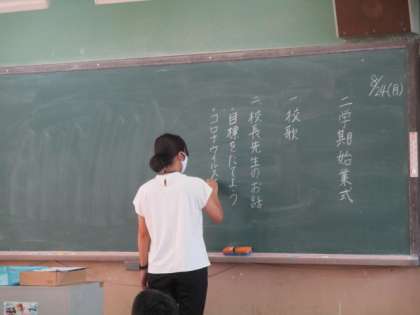 8/24(月)
二学期始業式
一 校歌
二 校長先生のお話
・目標をたてよう
・コロナウイルス